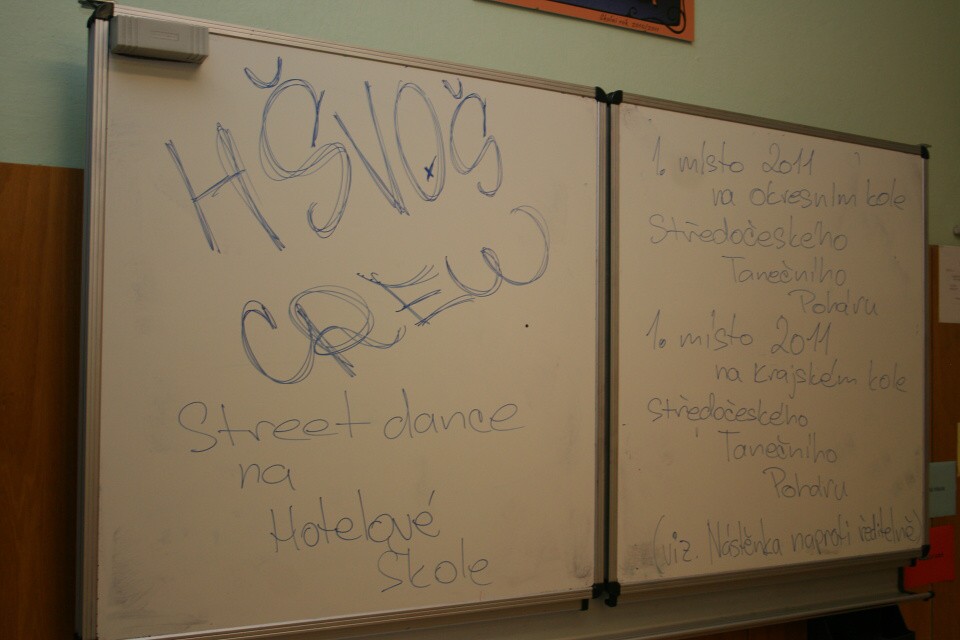 HŠVOŠ
CREW
Street dance
na
Hotelové
Škole
1. místo 2011
na okresním kole
Středočeského
Tanečního
Poháru
1. místo 2011
na krajském kole
středočeského
Tanečního
Poháru
(viz. Nástěnka naproti ředitelně)